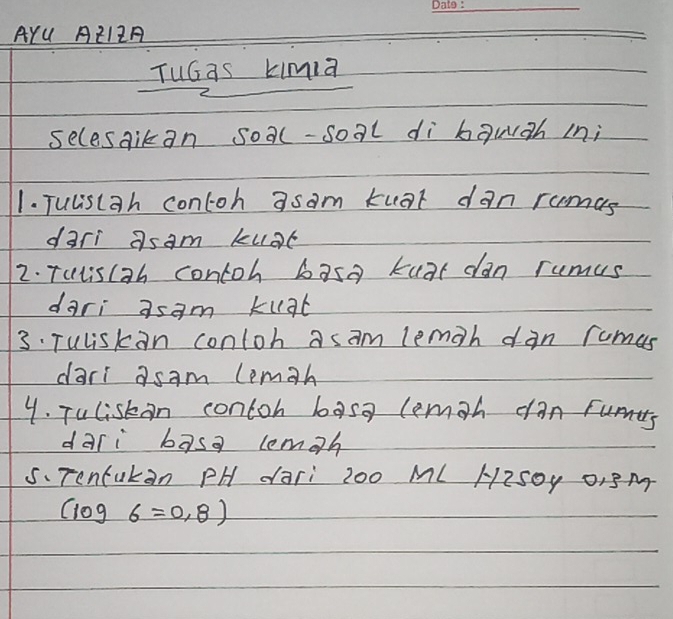 Date :
AYU AZIZA
TUGAS KIMIA
Selesaikan soal-soal di bawah ini
1. Tulislah contoh asam kuat dan rumus
dari asam kuat
2. Tulislah contoh basa kuat dan rumus
dari asam kuat
3. Tuliskan contoh asam lemah dan rumus
dari asam lemah
4. Tuliskan contoh basa lemah dan rumus
dari basa lemah
5. Tentukan PH dari 200 ML H2SO4 0,3 M
(log 6 = 0,8)